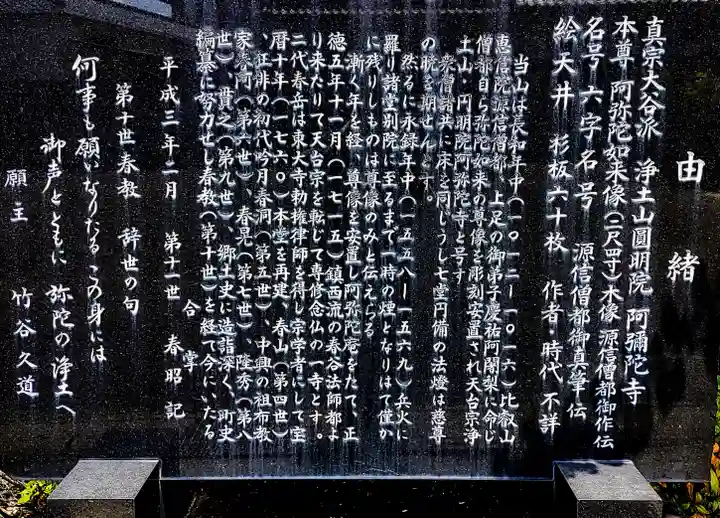 由緒
真宗大谷派 浄土山圓明院 阿彌陀寺
本尊 阿弥陀如来像(二尺四寸)木像 源信僧都御作伝
名号六字名号 源信僧都御真筆伝
絵天井 杉板六十枚 作者・時代不詳
当山は長和年中(一〇一二ー一〇一六)比叡山
恵信院源信僧都、上足の御弟子慶祐阿闍梨に命じ
僧都自ら弥陀如来の尊像を彫刻安置され天台宗浄
土山・円明院阿弥陀寺と号す
衆僧諸共に床を同じうし七堂円備の法燈は慈尊
の暁を期せんとす。
然るに永録年中(一五五八ー一五六九)兵火に
羅り諸堂別院に至るまで一時の煙となりはて僅か
に残りしものは尊像のみと伝えらる
漸く年を経、尊像を安置し阿弥陀庵をたて、正
徳五年十一月(一七一五)鎮西流の春谷法師都よ
り来たりて天台宗を転じて専修念仏の一寺とす。
二代春岳は東大寺勅権律師を得し宗学者にして宝
暦十年(一七六〇)本堂を再建、春山(第四世)
、正非の初代吟月春洞(第五世)、中興の祖布教
家春河(第六世)、春晃(第七世)、隆秀(第八
世)、貫之(第九世)、郷土史に造詣深く、町史
編纂に努力せし春教(第十世)を経て今にいたる
合掌
平成三年二月 第十一世 春昭 記
第十世春教 辞世の句
何事も願いなりたる この身には
御声とともに 弥陀の浄土へ
願主 竹谷久道